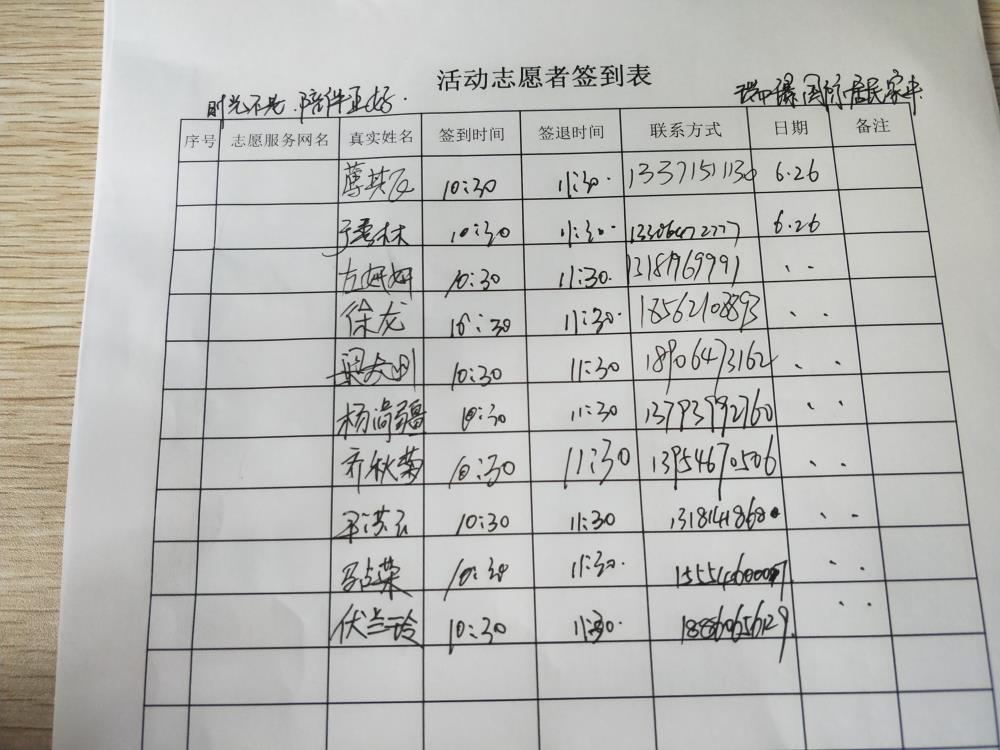 活动志愿者签到表
时光不老.陪伴正好.
国际居民家中
序号 志愿服务网名 真实姓名 签到时间 签退时间 联系方式 日期 备注
10:30 11:30. 13371511130 6.26
秀林 10:30 11:30. 6.26
左妍妍 10:30 11:30. 13181769991 、、
徐龙 10:30 11:30. 18562108893 、、
10:30 11:30 18906473162 、、
杨尚疆 10:30 11:30 13793992760 、、
乔秋菊 10:30 11:30 13954670506 、、
10:30 11:30 、、
马占荣 10:30 11:30. 、、
伏兰玲 10:30 11:30. 18860656129. 、、